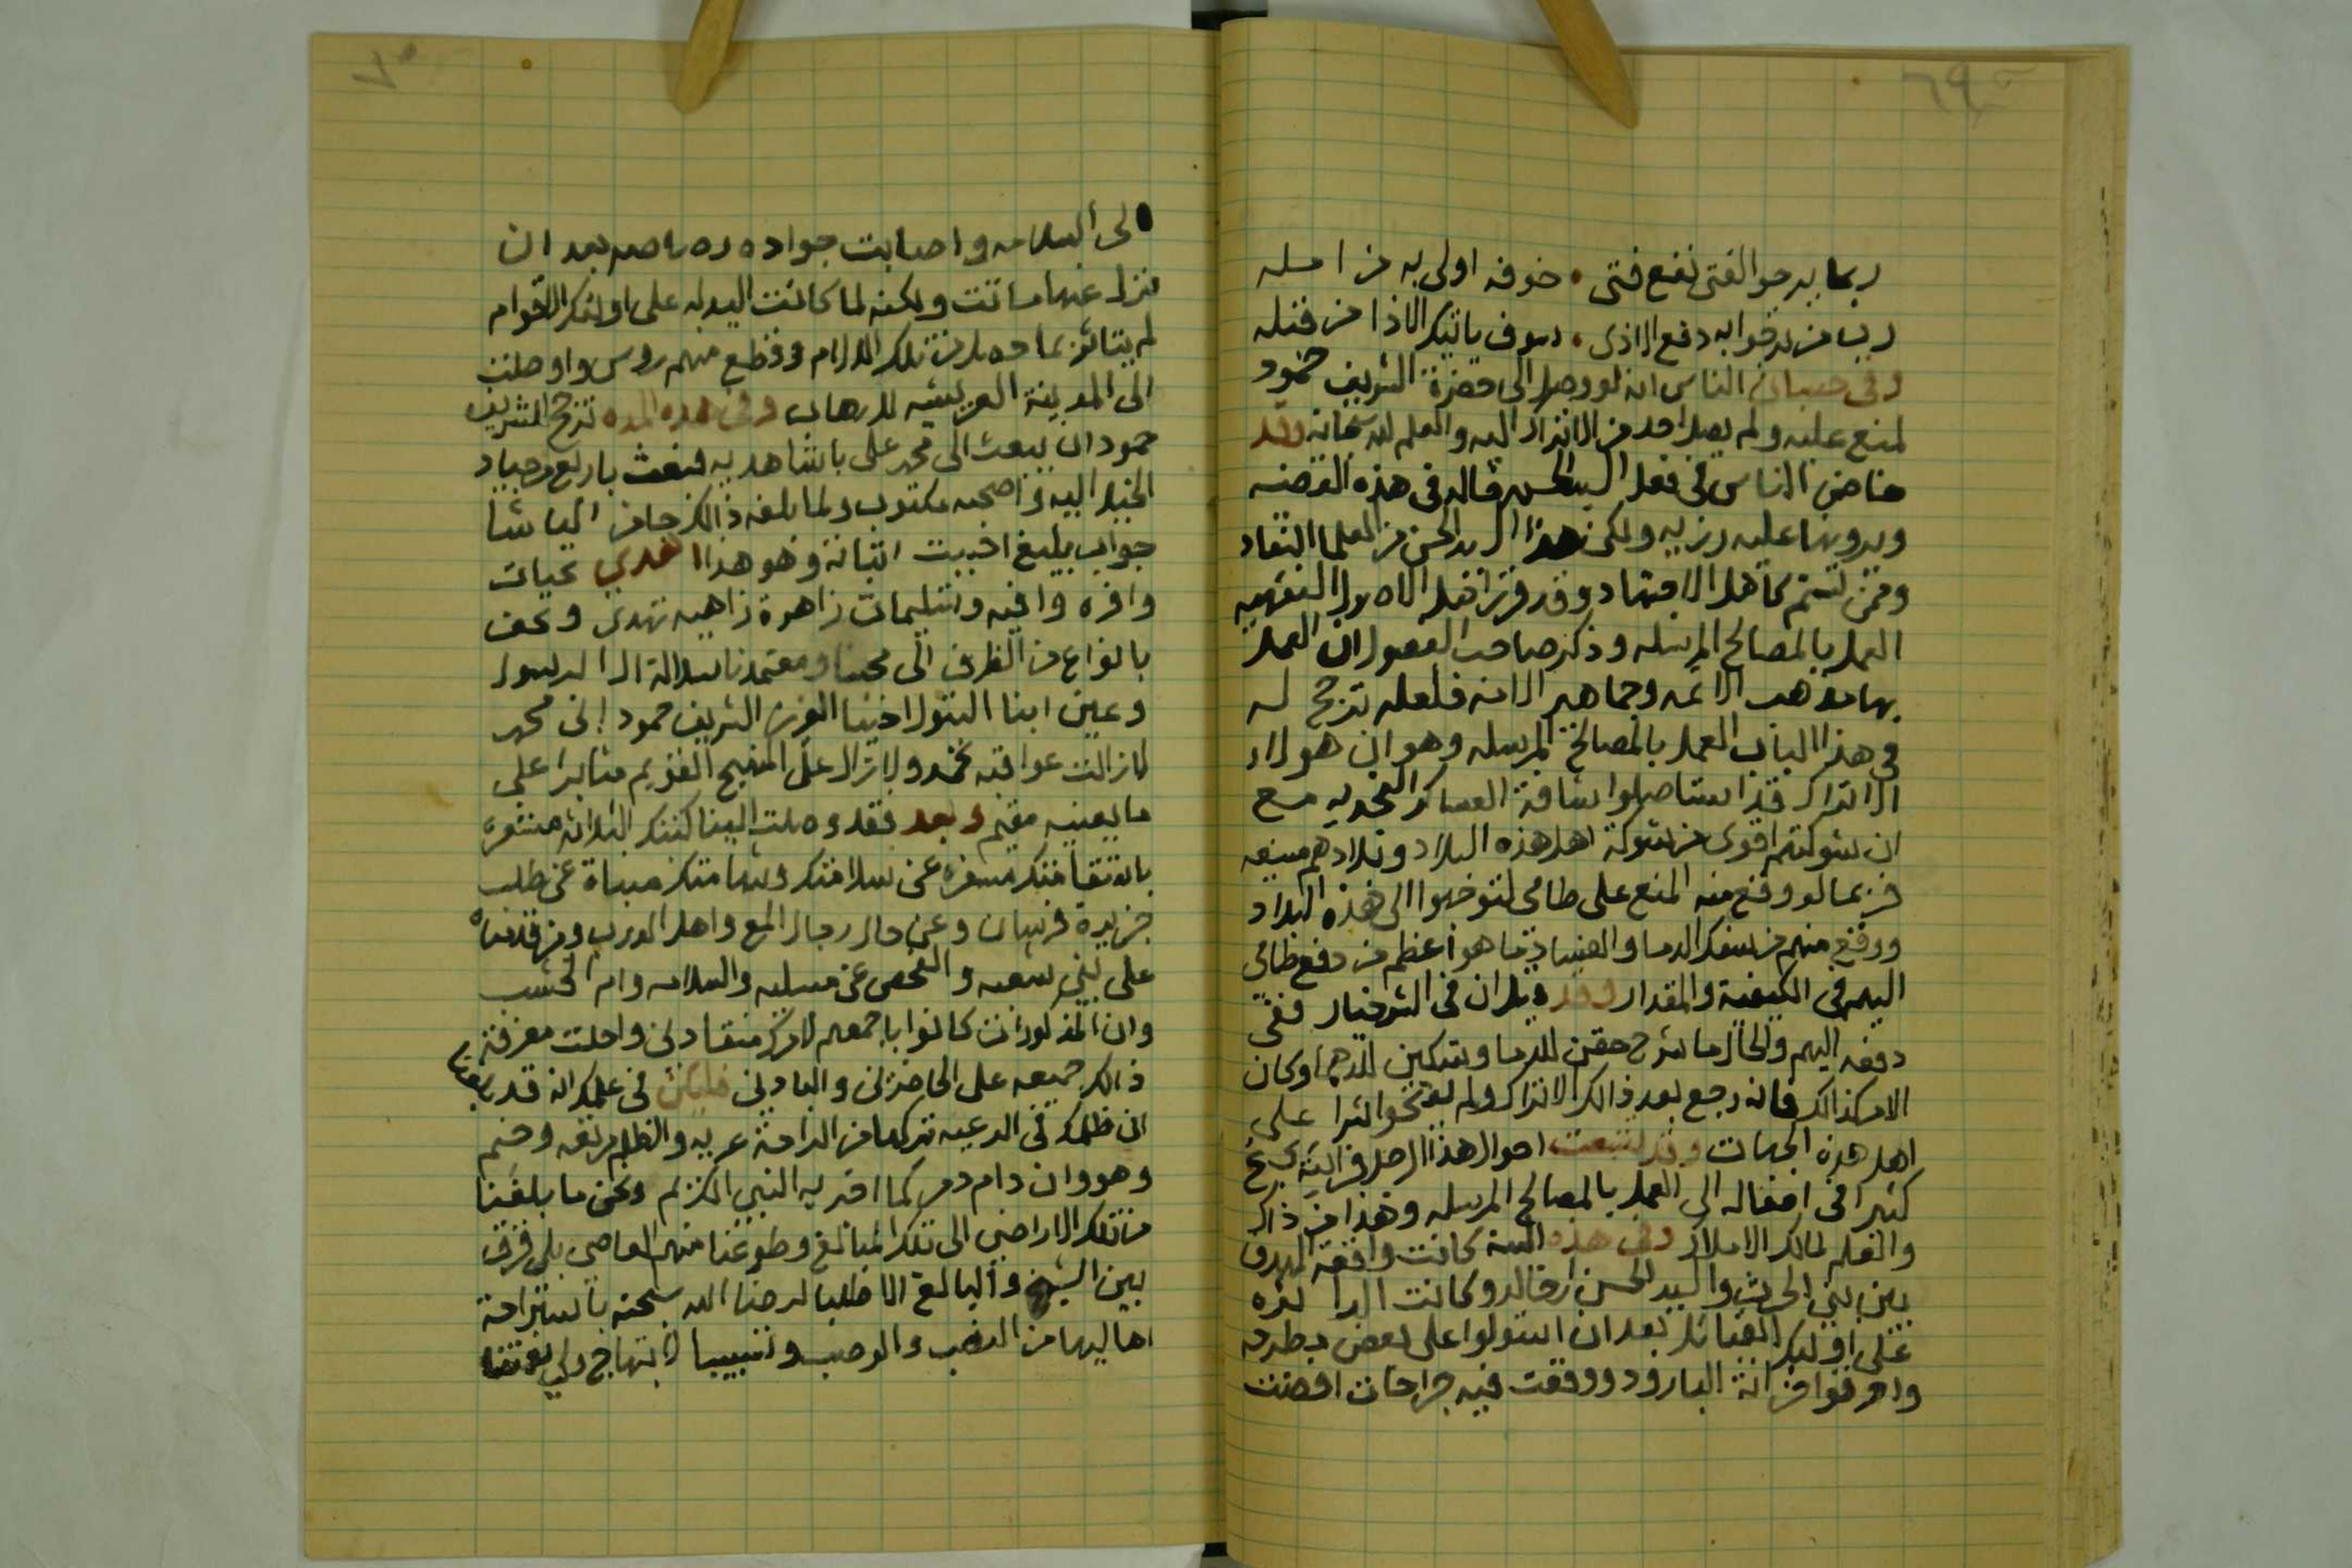 ٦٩
ربما يرجو الفتى نفع فتى • خوفه اولى به من امله
رب من ترجوا به دفع الاذى • سوف ياتيك الاذا من قبله
وفى حسبان الناس انه لو وصل الى حضرة الشريف حمود
لمنع عليه ولم يصل احد من الاتراك اليه والعلم لله سبحانه وقد
خاض الناس فى فعل السيد الحسن قاله فى هذه القضيه
ويرونها عليه رزيه ولكن هذا السيد الحسن من العلما النقاد
وممن تسنم كاهل الاجتهاد وقد قرر اهل الاصول الفقهيه
العمل بالمصالح المرسله وذكر صاحب الفصول ان العمل
بها مذهب الائمه وجماهير الامه فلعله ترجح له
فى هذا الباب العمل بالمصالح المرسله وهو ان هولاء
الاتراك قد استاصلوا شافة العساكر النجديه مع
ان شوكتهم اقوى من شوكة اهل هذه البلاد وبلادهم منيعه
فربما لو وقع منه المنع على طامى لتوجهوا الى هذه البلاد
ووقع منهم من سفك الدما والفساد ما هو اعظم من دفع طامى
اليهم فى الكيفية والمقدار وقد قيل ان فى الشر خيار ففى
دفعه اليهم والحال ما شرح حقن للدما وتسكين للدهما وكان
الامر كذالك فانه رجع بعد ذالك الاتراك ولم يفتحوا شرا على
اهل هذه الجهات وقد تتبعت احوال هذا الرجل فرايته يجنح
كثيرا فى افعاله الى العمل بالمصالح المرسله وهذا من ذاك
والعلم لمالك الاملاك وفى هذه السنة كانت واقعة
بين بنى الحرث والسيد الحسن ابن خالد وكانت الدايره
على اوليك القبائل بعد ان استولوا على بعض
واحرقوا خزانة البارود ووقعت فيه جراحات افضت
٧٠
الى السلامه واصابت جواده رصاصه بعد ان
نزل عنها ماتت ولكنه لما كانت اليد له على اولئك الاقوام
لم يتاثر بما حصل من تلك الالام وقطع منهم روس واوصلت
الى المدينة العريشيه للارهاب وفى هذه المده ترجح للشريف
حمود ان يبعث الى محمد على باشا هديه فبعث باربع من جياد
الخيل اليه واصحبه مكتوب ولما بلغه ذالك جا من الباشا
جواب بليغ احببت اثباته وهو هذا اهدي تحيات
وافره وافيه وتسليمات زاهرة زاهيه تهدى وتحف
بانواع من الظرف الى محبنا ومعتمدنا سلالة ال الرسول
وعين ابنا البتول اخينا العزيز الشريف حمود ابن محمد
لازالت عواقبه تحمد ولا زال على المنهج القويم مثابرا على
ما يعنيه مقيم وبعد فقد وصلت الينا كتبكم الثلاثه مشعره
باستقامتكم مسفره عن سلامتكم وشهامتكم منباة عن طلب
جزيرة فرسان وعن حال رجال المع واهل الدرب ومن قدمناه
على بنى شعبه والفحص عن مسليه والسلامه وام الخشب
وان المذكورات كانوا باجمعهم لامركم منقادين واحلت معرفة
ذالك جميعه على الحاضرين والبادين فليكن فى علمك انه قد بلغنا
ان ظلمك فى الرعيه تركها من الراحة عريه والظلم مرتعه وخيم
وهو وان دام دمر كما اخبر به النبي الكريم ونحن ما بلغنا
من تلك الاراضي الى تلك المبالغ وطوعنا منهم العاصي بلى فرق
بين الشيخ والبالغ الا طلبا لرضا الله سبحنه باستراحة
اهاليها من النصب والوصب وتسببا لابتهاج